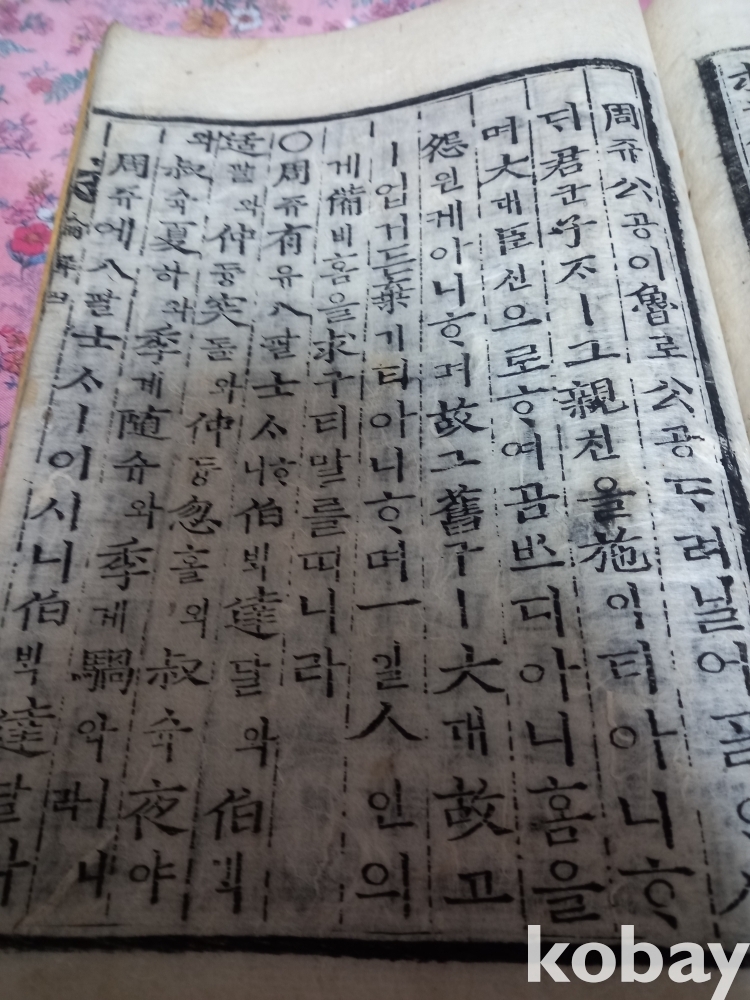 周쥬公공이魯로公공ᄃᆞ려닐어ᄀᆞᆯᄋᆞ샤
ᄃᆡ君군子ᄌᆞㅣ그親친을施이티아니ᄒᆞ
며大대臣신으로ᄒᆞ여곰ᄡᅳ디아니홈을
怨원케아니ᄒᆞ며故고舊구ㅣ大대故고
ㅣ업거든棄기티아니ᄒᆞ며一일人인의
게備비홈을求구티말를ᄯᅵ니라
○周쥬有유八팔士ᄉᆞᄒᆞ니伯ᄇᆡᆨ達달와伯ᄇᆡᆨ
适괄와仲듕突돌와仲듕忽홀와叔슉夜야
와叔슉夏하와季계随슈와季계騧와ㅣ러니
周쥬에八팔士ᄉᆞㅣ이시니伯ᄇᆡᆨ達달와
kobay